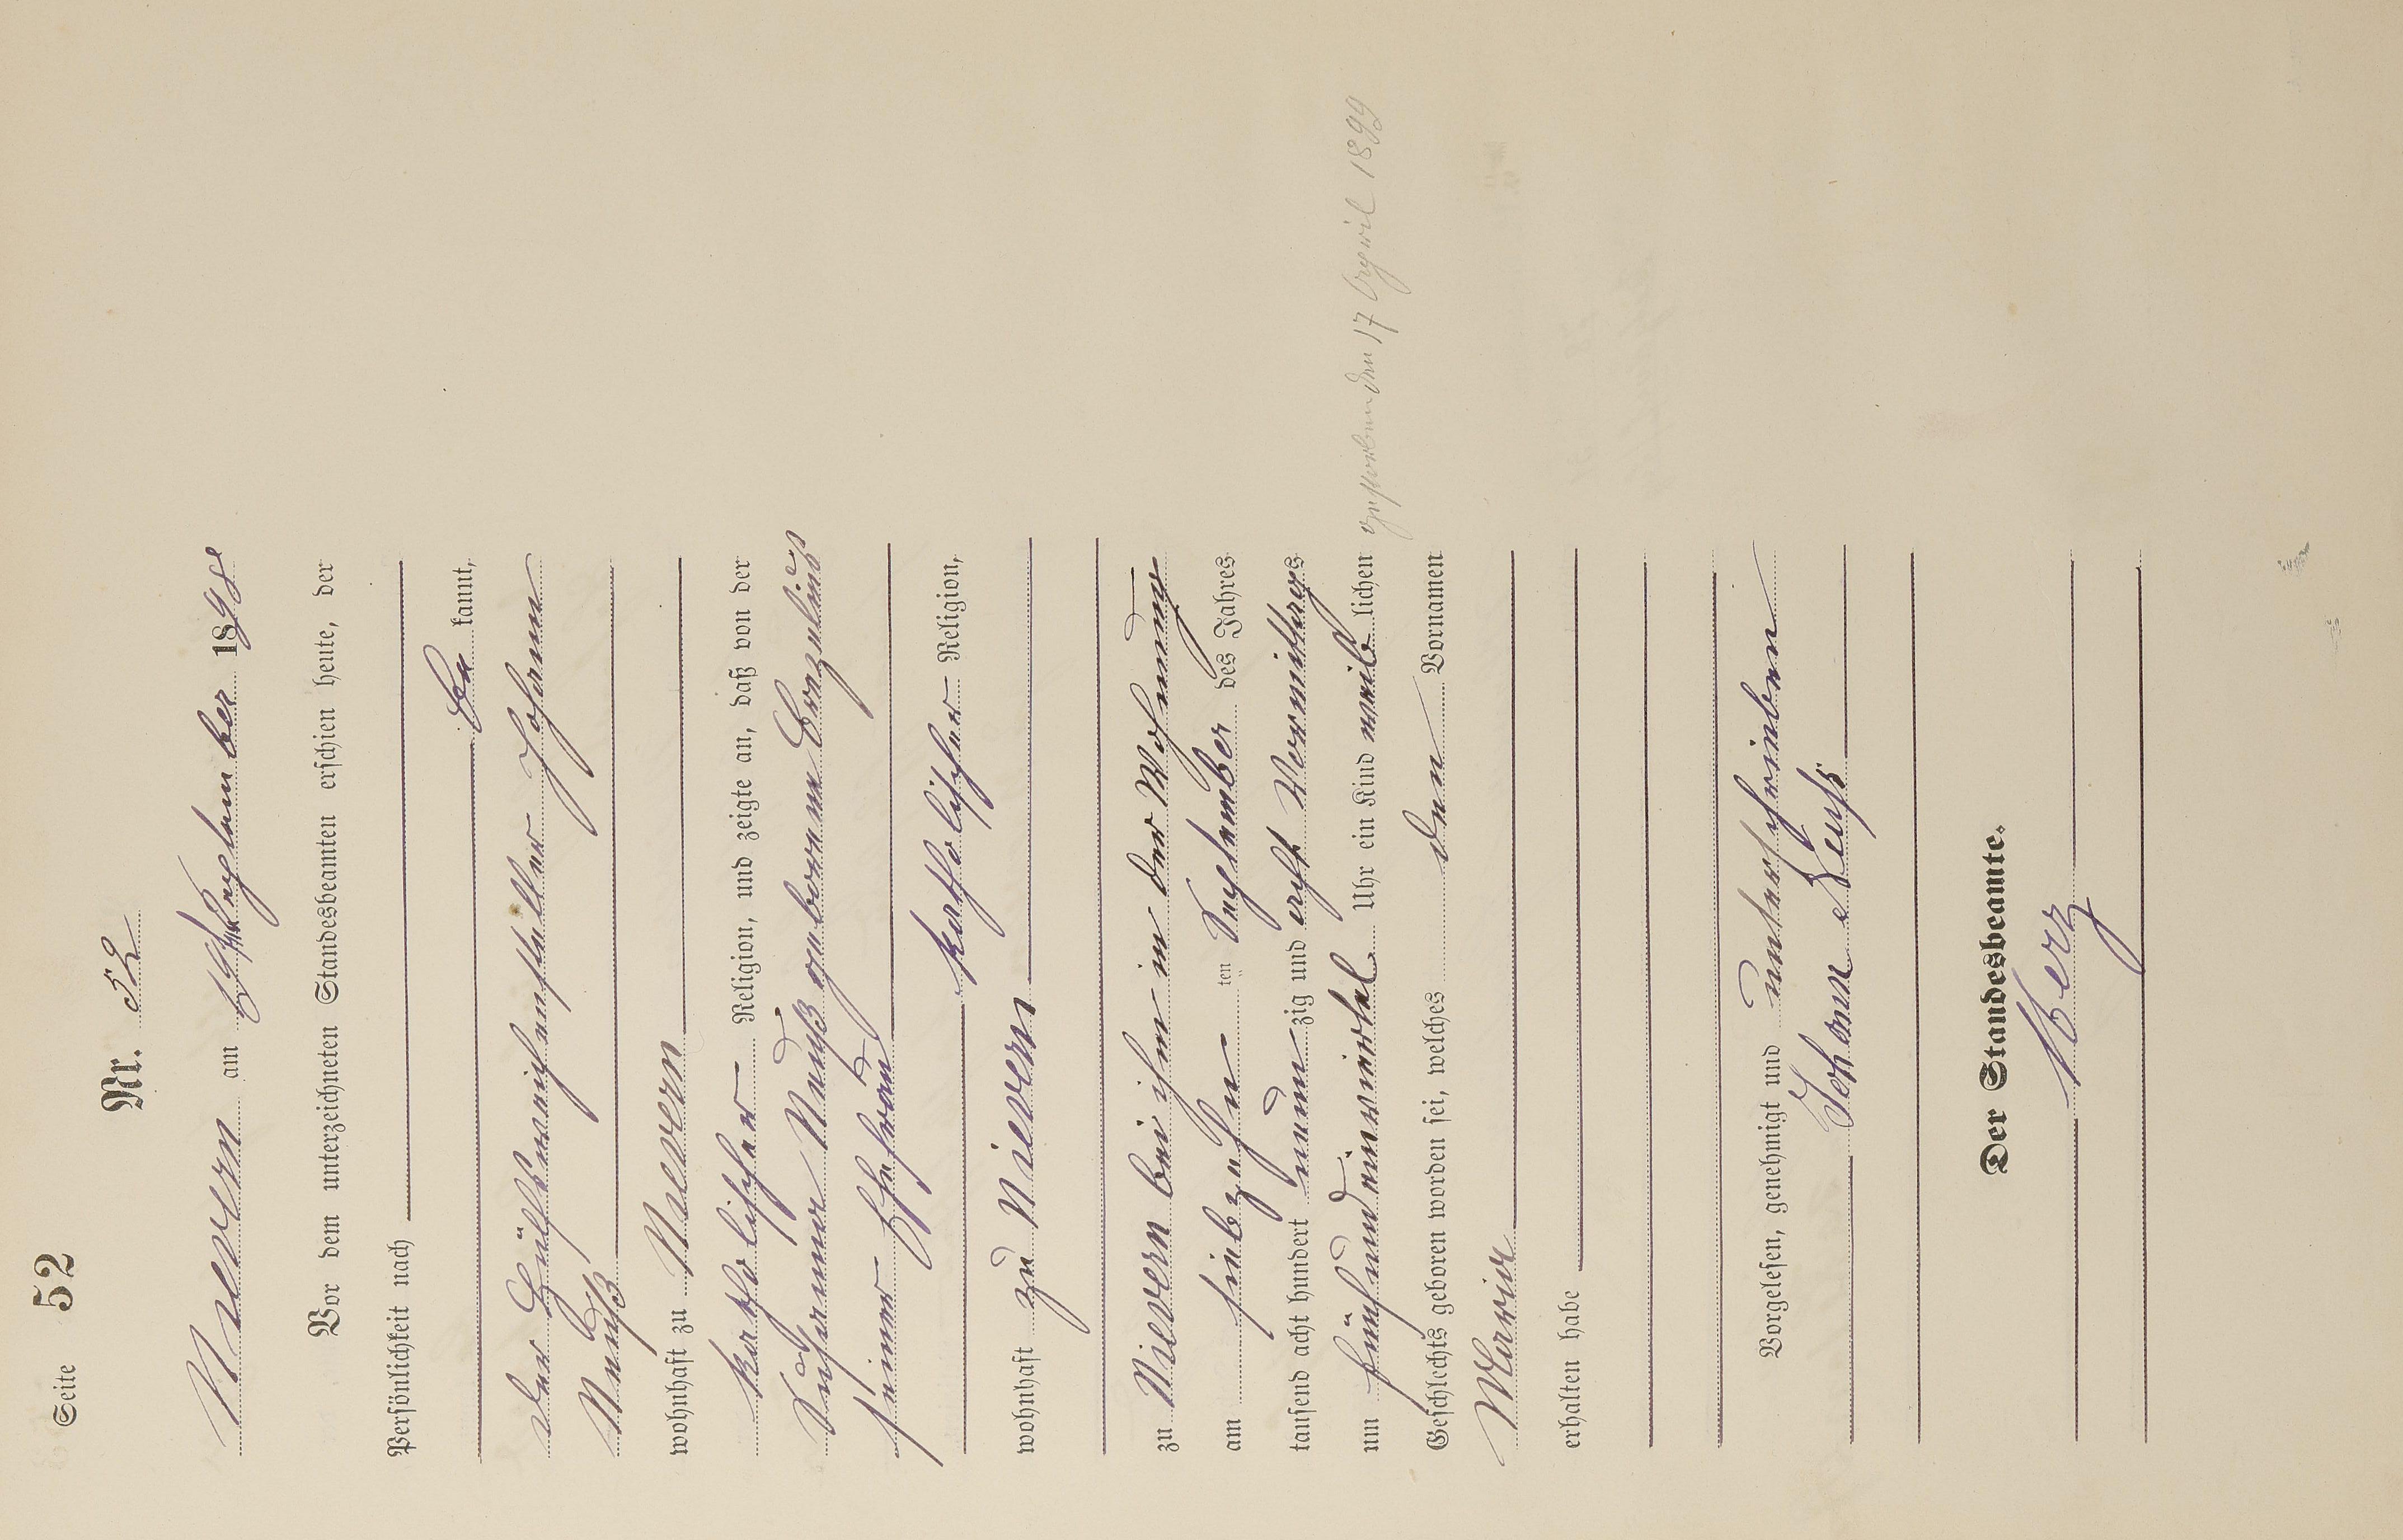 Seite 52
Nr. 52
Nievern am 19ten September 1898
Vor dem unterzeichneten Standesbeamten erschien heute, der
Persönlichkeit nach
be kannt,
der Hülfsweichensteller Johann
Neuß
wohnhaft zu Nievern
katholischer Religion, und zeigte an, daß von der
Susanna Neuß geborenen Corzelius
seiner Ehefrau
katholischer Religion,
wohnhaft zu Nievern
zu Nievern bei ihm in der Wohnung
am siebzehn ten September des Jahres
tausend acht hundert neun zig und acht Vormittags
um fünfundeinviertel Uhr ein Kind weib lichen
gestorben den 17 April 1899
Geschlechts geboren worden sei, welches den Vornamen
Maria
erhalten habe
Vorgelesen, genehmigt und unterschrieben
Johann Neuß
Der Standesbeamte.